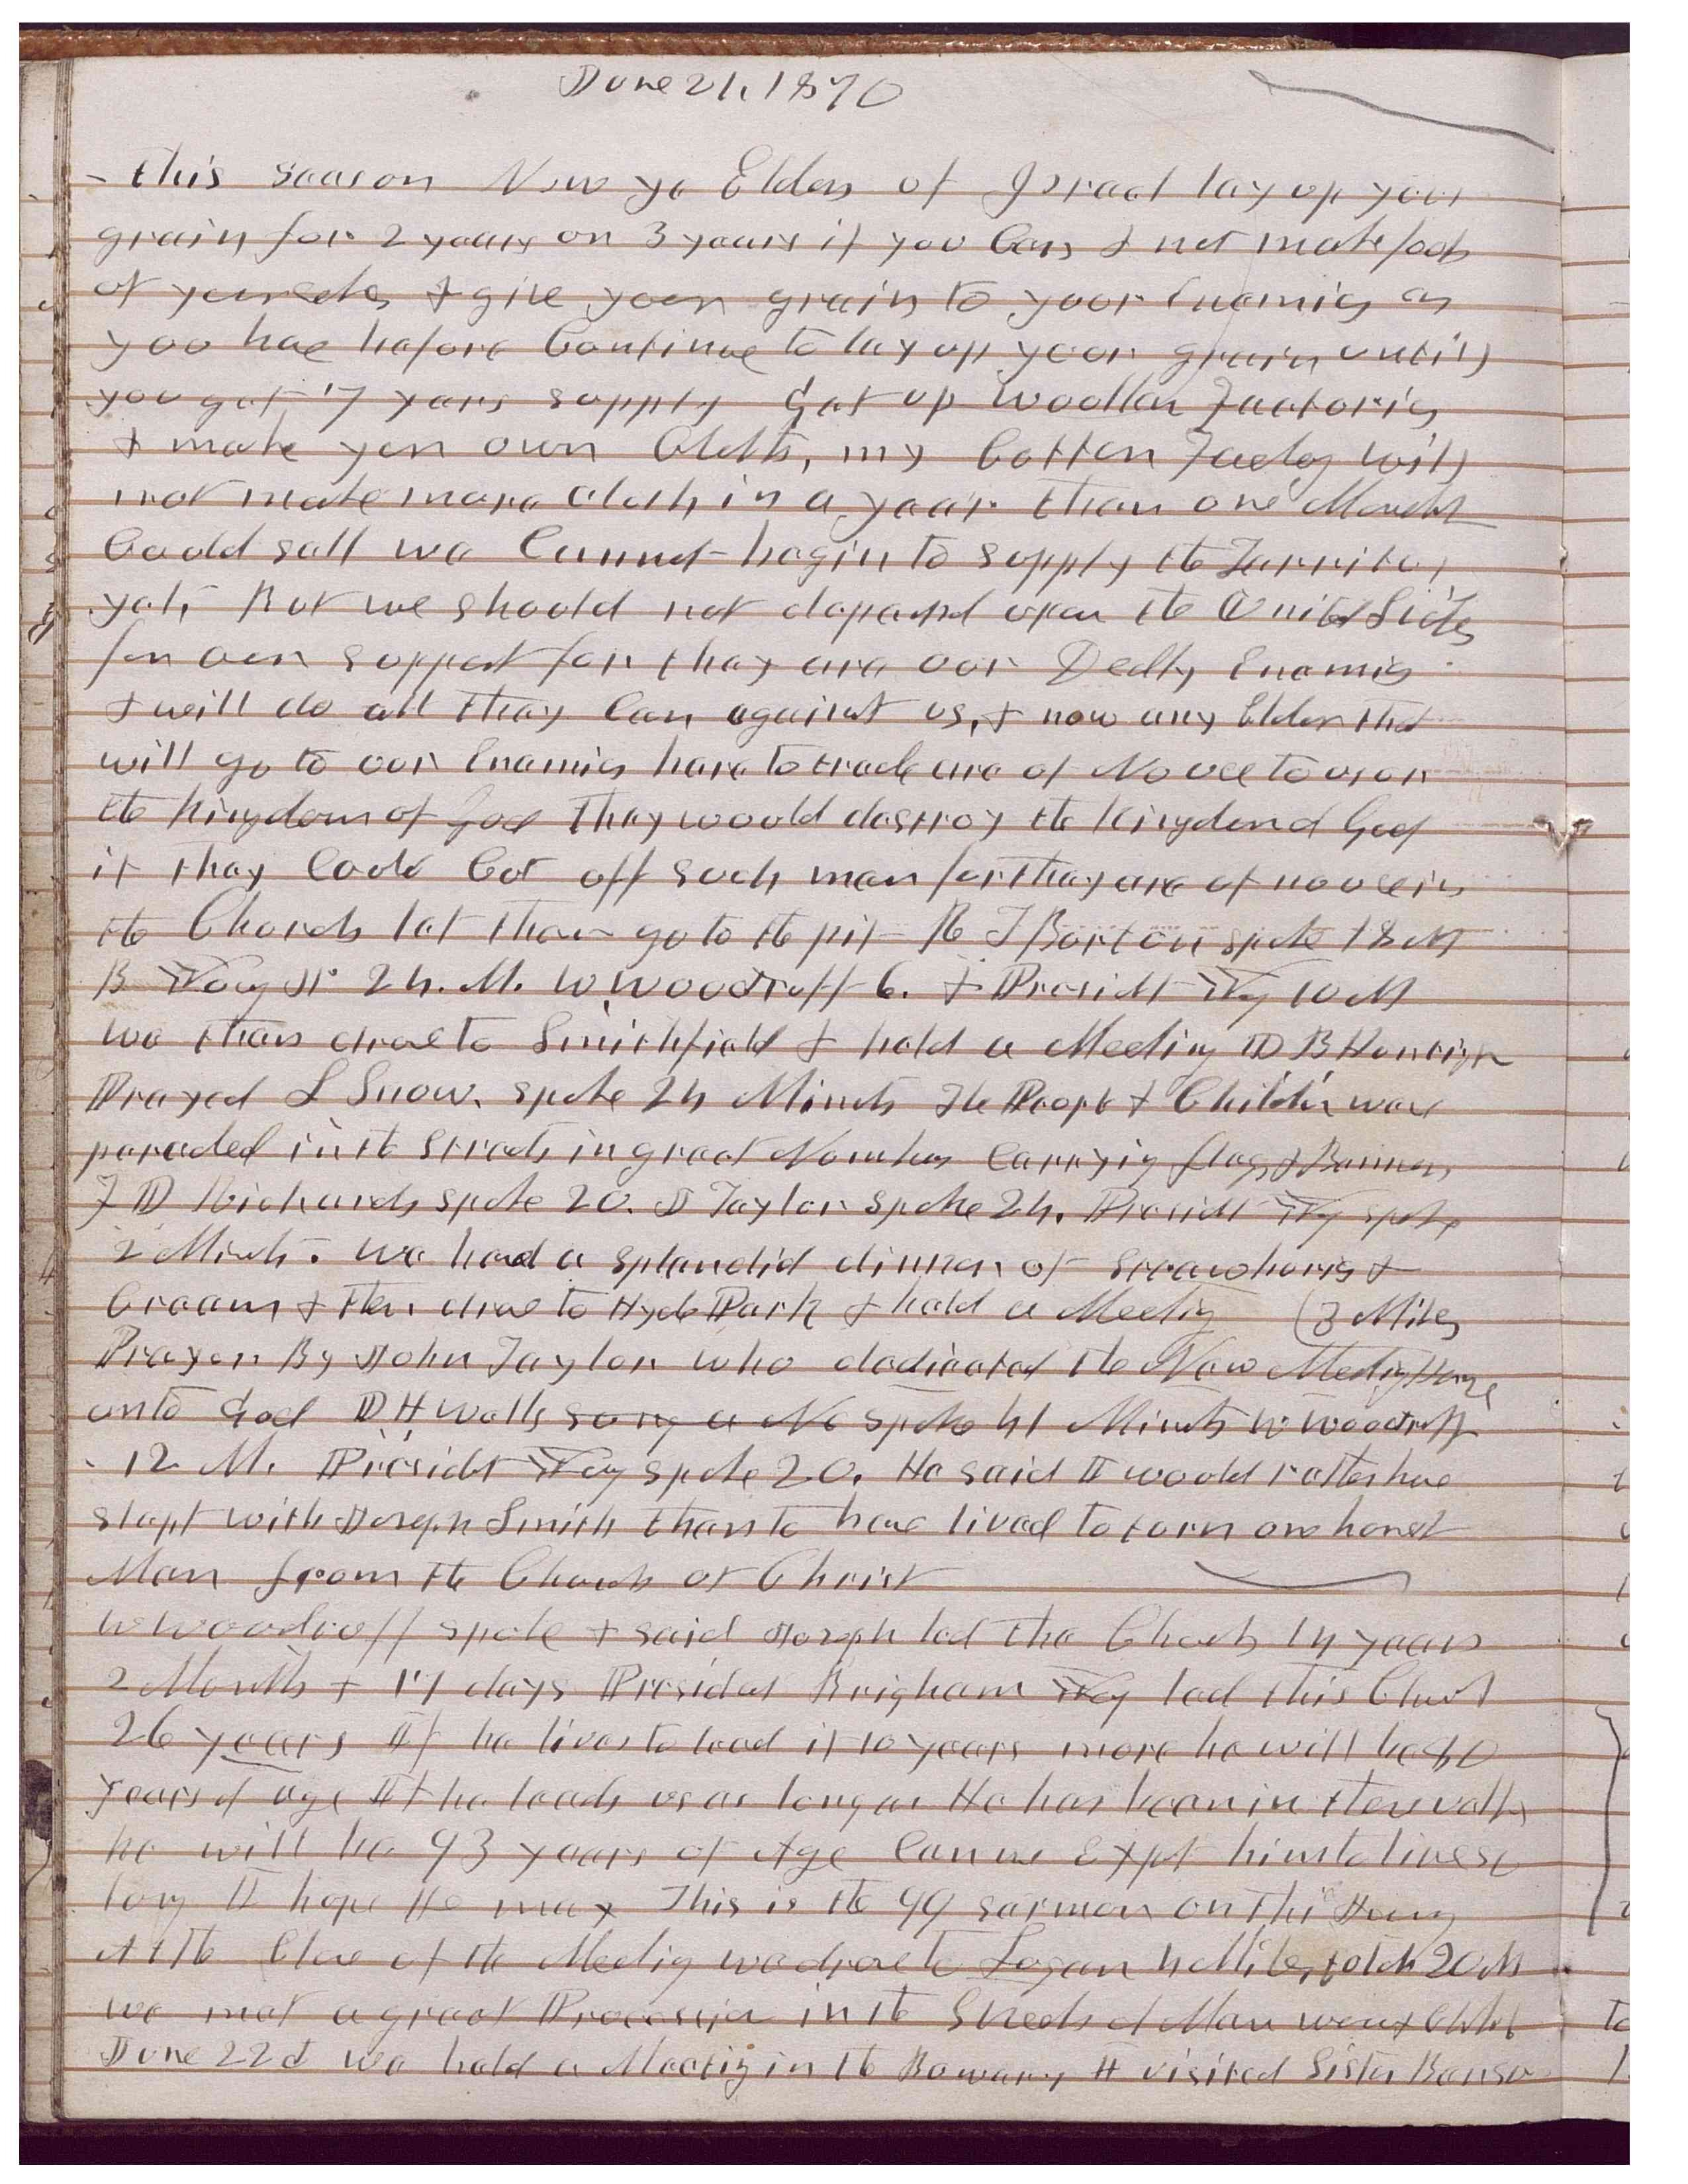 June 21, 1870
this season Now ye Elders of Israel lay up your
grain for 2 years or 3 years if you Can & not make fools
of yourselves & give your grain to your Enemies as
you have before Continue to lay up your grain untill
you get 7 years supply Get up woollen Factories
& make your own Cloth, my Cotton Factory will
not make more cloth in a year than one Merchant
Could sell we Cannot begin to supply the Territory
yet, But we should not depend upon the United States
for our support for they are our Deadly Enemies
& will do all they Can against us, & now any Elder that
will go to our Enemies here to trade are of No use to us or
the kingdom of God They would destroy the Kingdom of God
if they Could Cut off such men for they are of no use in
the Church let them go to the pit R T Burton spoke 18 M
B Young Jr 24. M. W Woodruff 6. & Presidt Yg 10 M
we then drove to Smithfield & held a Meeting D B Huntington
Prayed L Snow. spoke 24 Minuts The People & Children were
paraded in the Streets in great Numbers Carrying flags & Banners
F D Richards spoke 20. J Taylor spoke 24. Presidt Yg spoke
2 Minuts. we had a splendid dinner of Strawberries &
Cream & then drove to Hyde Park & held a Meetig (3 Miles
Prayer By John Taylor who dedicated the New Meeting House
unto God D H Wells song a No spoke 41 Minuts W Woodruff
12 M. Presidt Young spoke 20. He said I would rather have
slept with Joseph Smith than to have lived to turn one honest
Man from the Church of Christ
W Woodruff spoke & said Joseph led the Church 14 years
2 Months & 17 days President Brigham Yg led this Church
26 years If he lives to lead it 10 years more he will be 80
years of age If he leads us as long as He has been in these vallys
he will be 93 years of Age Can we Expet him to live so
long I hope He may This is the 99 sermon on this Journy
At the Close of the Meetig we drove to Logan 4 Miles, total 20 M
we met a great Procession in the Streets of Men women & Childn
June 22d we held a Meetig in the Bowery I visited Sister Benson